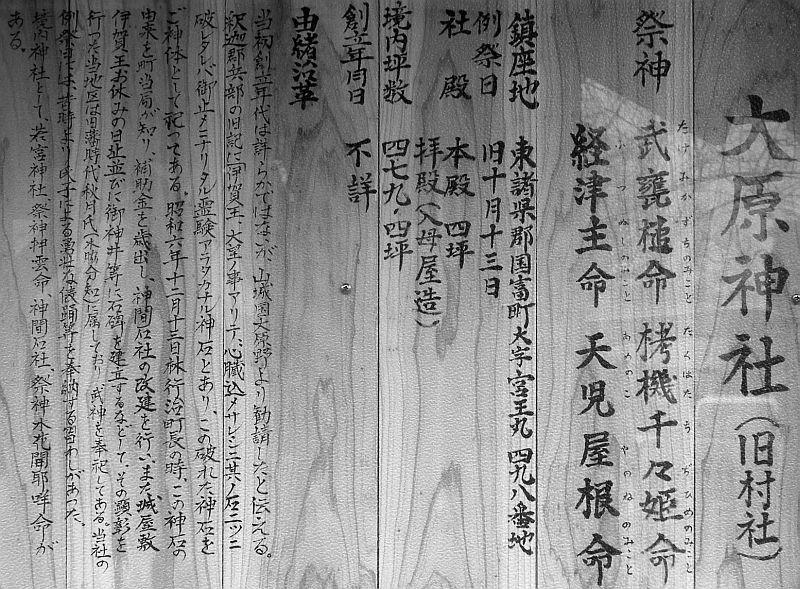 大原神社（旧村社）
祭神 武甕槌命 栲機千々姫命
たけみかずちのみこと たくはたちぢひめのみこと
経津主命 天児屋根命
ふつぬしのみこと あめのこやねのみこと
鎮座地 東諸県郡国富町大字宮王丸四九八番地
例祭日 旧十月十三日
社殿 本殿 四坪
拝殿（入母屋造）
境内坪数 四七九・四坪
創立年月日 不詳
由緒沿革
当初創立年代は詳らかではないが、山城国大原野より勧請したと伝える。
釈迦郡兵部の旧記に伊賀王、大王ノ事アリテ、心臓込メサレシニ其ノ石二ツニ
破レタレバ御止メニナリタル霊験アラタカナル神石とあり、この破れた神石を
ご神体として祀ってある。昭和六年十二月十三日林行治町長の時、この神石の
由来を町当局が知り、補助金を歳出し、神間石社の改建を行い、また、城屋敷
伊賀王お休みの日址並びに御神井等に石碑を建立するなどして、その顕彰を
行った当地区は旧藩時代秋月氏木脇分知に属しており、武神を奉祀してある。当社の
例祭日には、昔時より氏子による勇壮な俵踊等を奉納する習わしがあった。
境内神社として、若宮神社、祭神押雲命、神間石社、祭神木花開耶咩命が
ある。